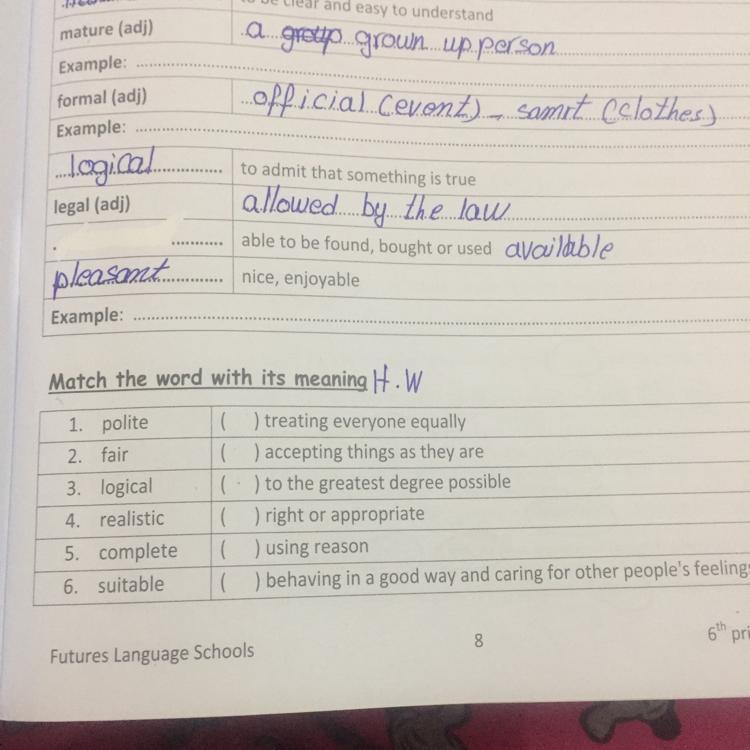 be clear and easy to understand
mature (adj) a group grown up person
Example:
formal (adj) official (event) - samrt (clothes)
Example:
logical to admit that something is true
legal (adj) allowed by the law
able to be found, bought or used available
pleasant nice, enjoyable
Example:
Match the word with its meaning H.W
1. polite ( ) treating everyone equally
2. fair ( ) accepting things as they are
3. logical ( ) to the greatest degree possible
4. realistic ( ) right or appropriate
5. complete ( ) using reason
6. suitable ( ) behaving in a good way and caring for other people's feelings
Futures Language Schools 8 6th pri